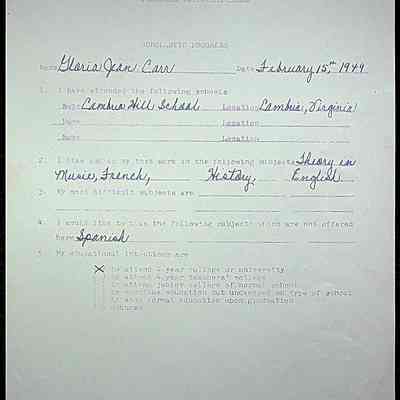 SCHOLASTIC PROGRESS
Name Gloria Jean Carr Date February 15th, 1949
1. I have attended the following schools
Name Cambria Hill School Location Cambria, Virginia
Name Location
Name Location
2. I like and enjoy my work in the following subjects Theory in
Music, French, History, English
3. My most difficult subjects are
4. I would like to take the following subjects which are not offered
here Spanish
5. My educational intentions are
X to attend 4-year college or university
to attend 4-year teachers' college
to attend junior college or normal school
to continue education but undecided on type of school
to end formal education upon graduation